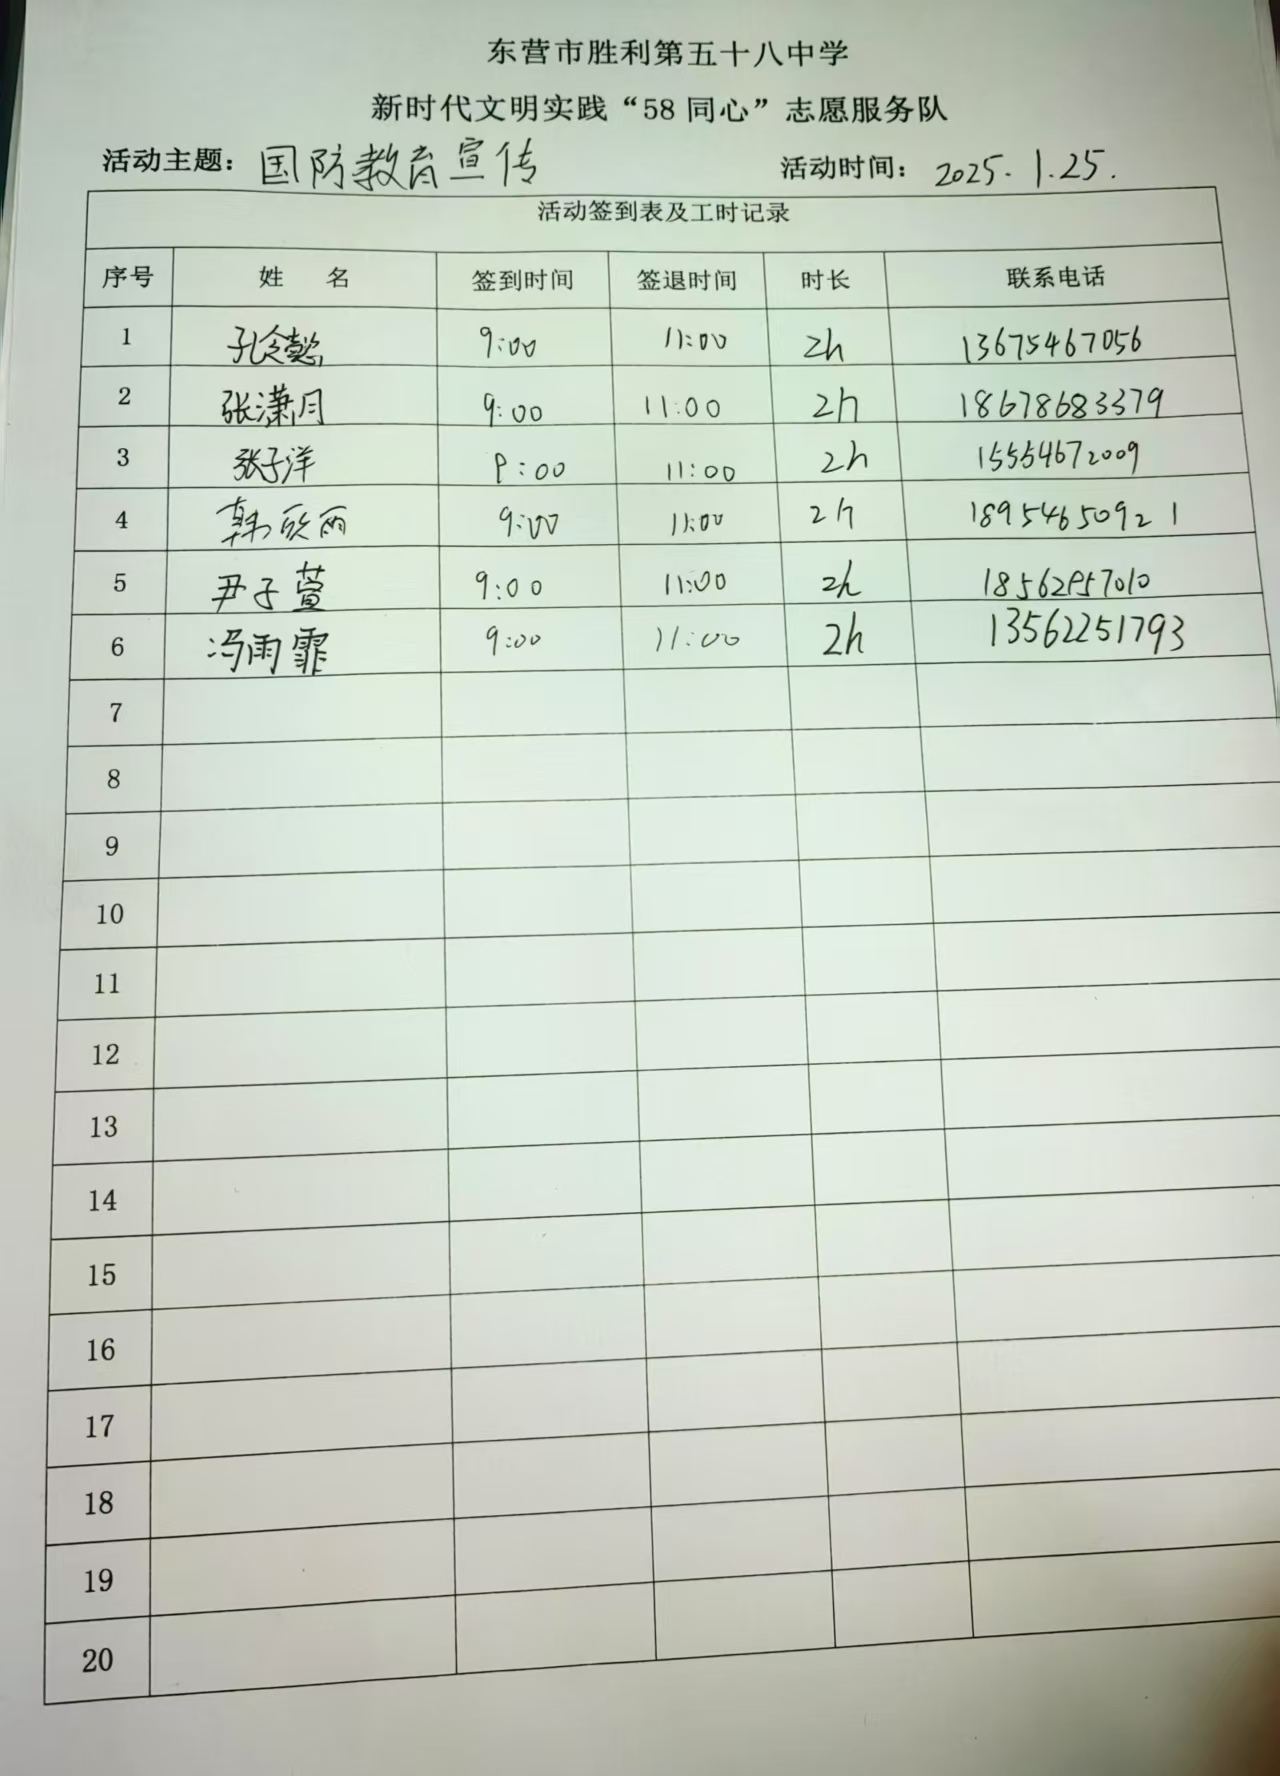 东营市胜利第五十八中学
新时代文明实践“58同心”志愿服务队
活动主题：国防教育宣传 活动时间：2025.1.25.
活动签到表及工时记录
序号 姓 名 签到时间 签退时间 时长 联系电话
1 孔令懿 9:00 11:00 2h 13675467056
2 张潇月 9:00 11:00 2h 18678683379
3 张子洋 9:00 11:00 2h 15554672009
4 韩欣雨 9:00 11:00 2h 18954650921
5 尹子萱 9:00 11:00 2h 18562957010
6 冯雨霏 9:00 11:00 2h 13562251793
7
8
9
10
11
12
13
14
15
16
17
18
19
20